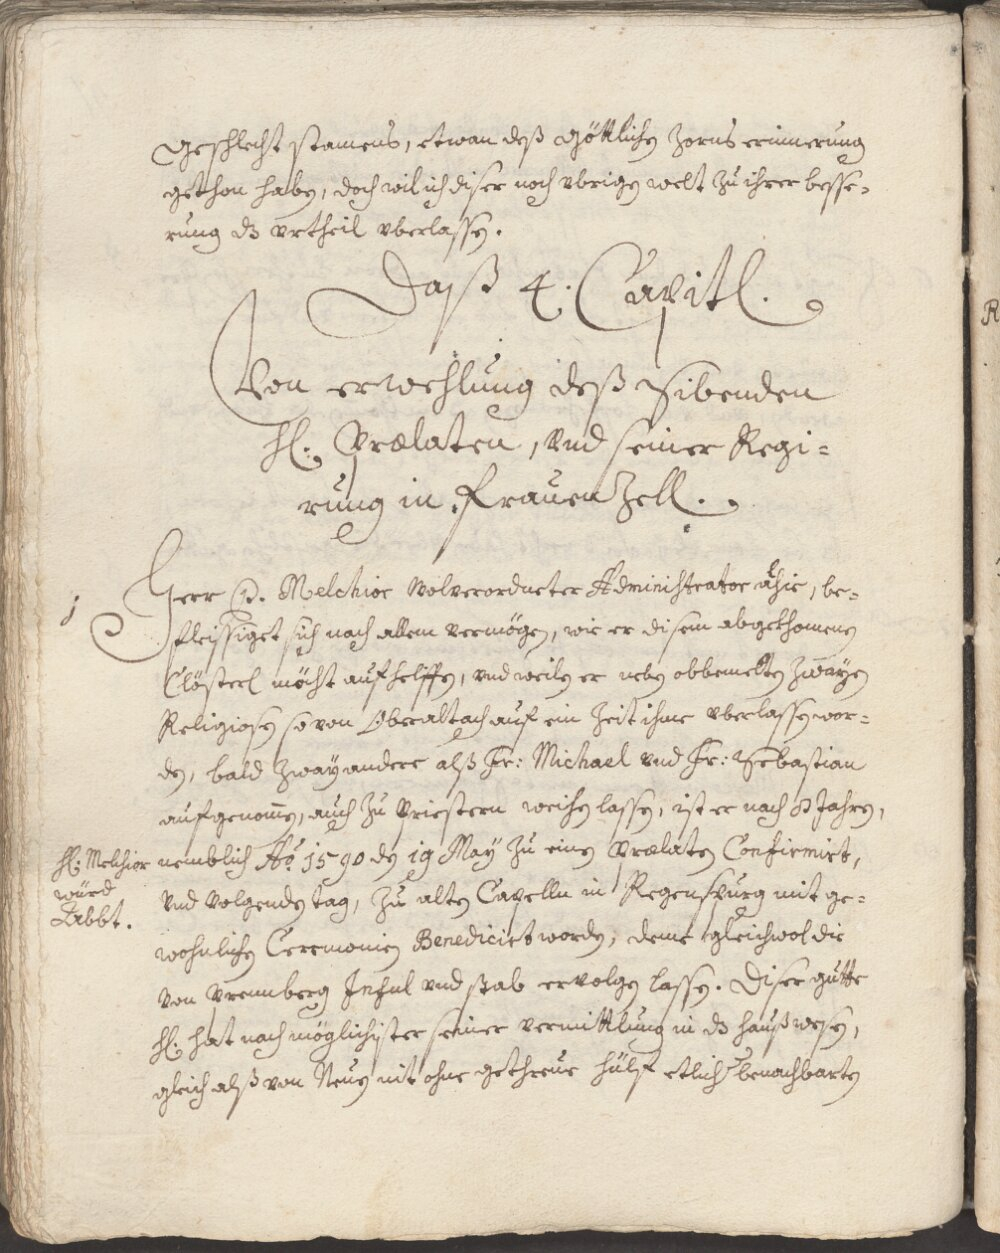 Geschlecht stamens, etwan deß Göttlichen Zorns erinnerung
gethon haben, doch wil ich diser noch vbrigen welt zu ihrer besse-
rung dz vrtheil vberlassen.
Daß 4. Capitl.
Von erwehlung deß Sibenden
H. Prælaten, vnd seiner Regi-
rung in FrauenZell.
Herr P. Melchior wolverordneter Administrator alhie, be-
fleissiget sich nach allem vermögen, wie er disem abgekhomenen
Clösterl möcht aufhelffen, vnd weilen er neben obbemelten zwayen
Religiosen so von Oberaltach auf ein Zeit ihme vberlassen wor-
den, bald zway andere alß Fr: Michael vnd Fr: Sebastian
aufgenomen, auch zu Priestern weihen lassen, ist er nach 8 Jahren,
H. Melchior
würd
Abbt.
nemblich Ao. 1590 den 19 May zu einen Prælaten Confirmirt,
vnd volgenden tag, zu alten Capelln in Regenspurg mit ge-
wohnlichen Ceremonien Benedicirt worden, deme gleichwol die
von Prennberg Inful vnd stab ervolgen lassen. Diser gutte
H. hat nach möglichister seiner vermittlung in dz haußwesen,
gleich alß von Neuen nit ohne gethreue hülf etlicher benachbarten